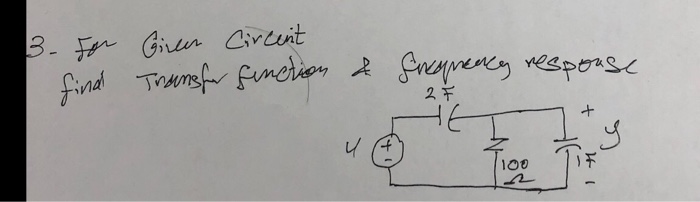 3- For Given Circuit
find Transfer function & frequency response
2 F
+
u
+
-
100
Ω
1F
y
-